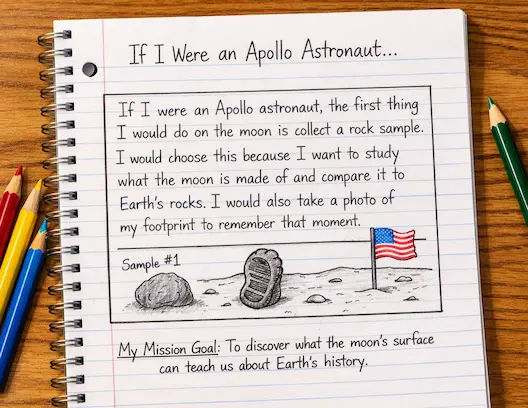 If I Were an Apollo Astronaut...
If I were an Apollo astronaut, the first thing
I would do on the moon is collect a rock sample.
I would choose this because I want to study
what the moon is made of and compare it to
Earth's rocks. I would also take a photo of
my footprint to remember that moment.
Sample #1
My Mission Goal: To discover what the moon's surface
can teach us about Earth's history.